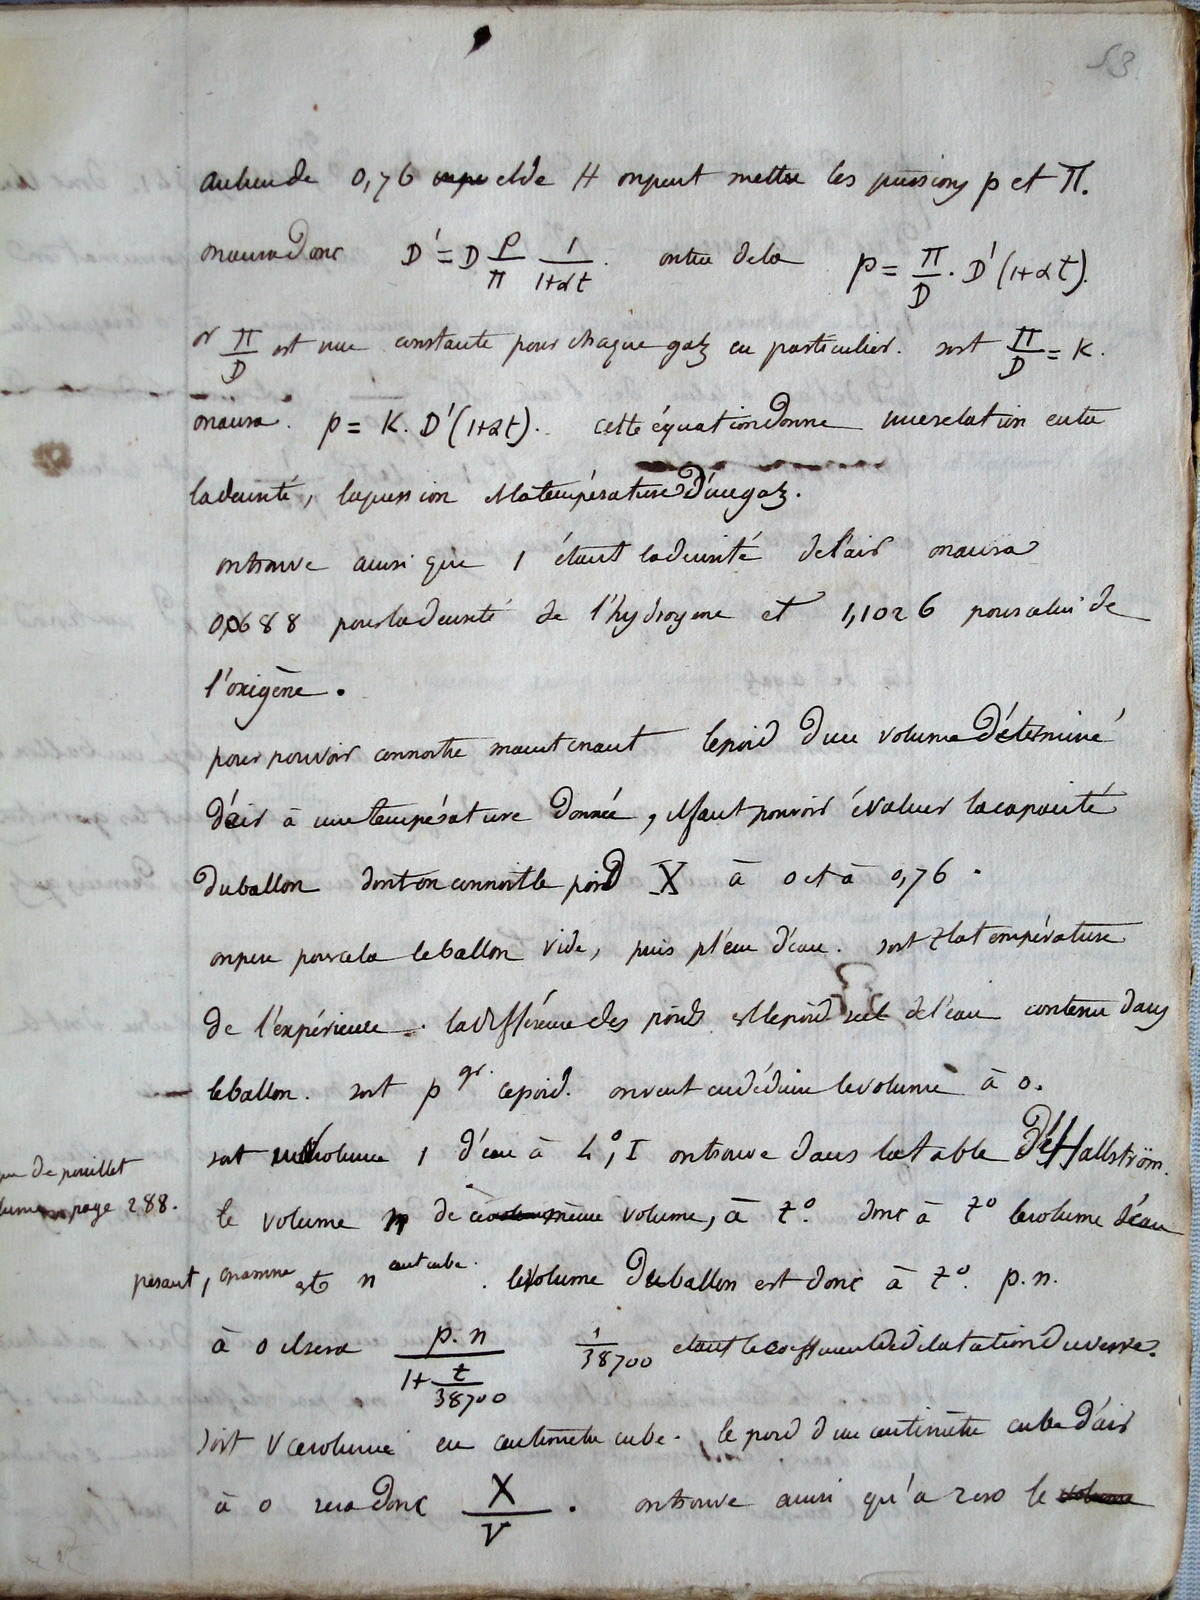 53
au lieu de 0,76 et de H on peut mettre les pressions p et π.
on aura donc D' = D P/π 1/1+αt. on tire de là p = π/D . D' (1+αt).
or π/D est une constante pour chaque gaz en particulier. soit π/D = K.
on aura. p = K. D' (1+αt). cette équation donne une relation entre
la densité, la pression et la température d'un gaz.
on trouve ainsi que 1 étant la densité de l'air on aura
0,0688 pour la densité de l'hydrogene et 1,1026 pour celui de
l'oxigène.
pour pouvoir connoitre maintenant le poid d'un volume déterminé
d'air à une température donnée, il faut pouvoir évaluer la capacité
du ballon dont on connoit le poid X à 0 et à 0,76.
on pese pour cela le ballon vide, puis plein d'eau. soit t la température
de l'expérience. la différence des poids est le poid de l'eau contenu dans
le ballon. soit p gr. ce poid. on veut en déduire le volume à 0.
soit volume 1 d'eau à 4°,1 on trouve dans la table d'Hallström.
de pouillet
page 288.
le volume n de ce même volume, à t°. donc à t° le volume d'eau
pesant 1 gramme est n cent cube. le volume du ballon est donc à t°. p.n.
à 0 il sera p.n / 1+ t/38700 1/38700 étant le coefficient de dilatation du verre.
soit V ce volume en centimètre cube. le poid d'un centimètre cube d'air
à 0 sera donc X/V. on trouve ainsi qu'a zero le volume